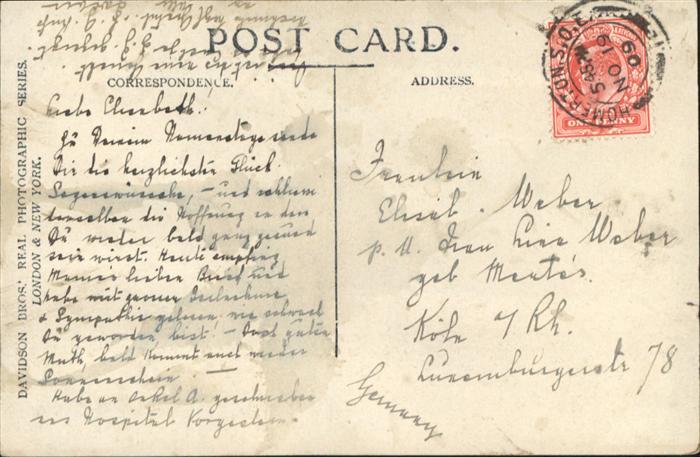 POST CARD.
CORRESPONDENCE.
ADDRESS.
DAVIDSON BROS.' REAL PHOTOGRAPHIC SERIES.
LONDON & NEW YORK.
HOMERTON S.O.E.
NO 16
09
ONE PENNY
Liebe Elisabeth.
Zu Deinem Namenstage sende
Dir die herzlichsten Glück
Segenswünsche, – und
denselben die Hoffnung an dass
Du wieder bald ganz gesund
sein wirst. Heute empfing
Mamas lieben Brief und
habe mit grosser Teilnahme
& Sympathie gelesen wie schwach
Du geworden bist! – Doch guten
Muth, bald kommt auch wieder
Sonnenschein.
Habe an Onkel A. geschrieben
ins Hospital
Fraulein
Elisab. Weber
p. U. Frau Lina Weber
geb
Köln a/Rh.
Luxemburgerstr 78
Germany